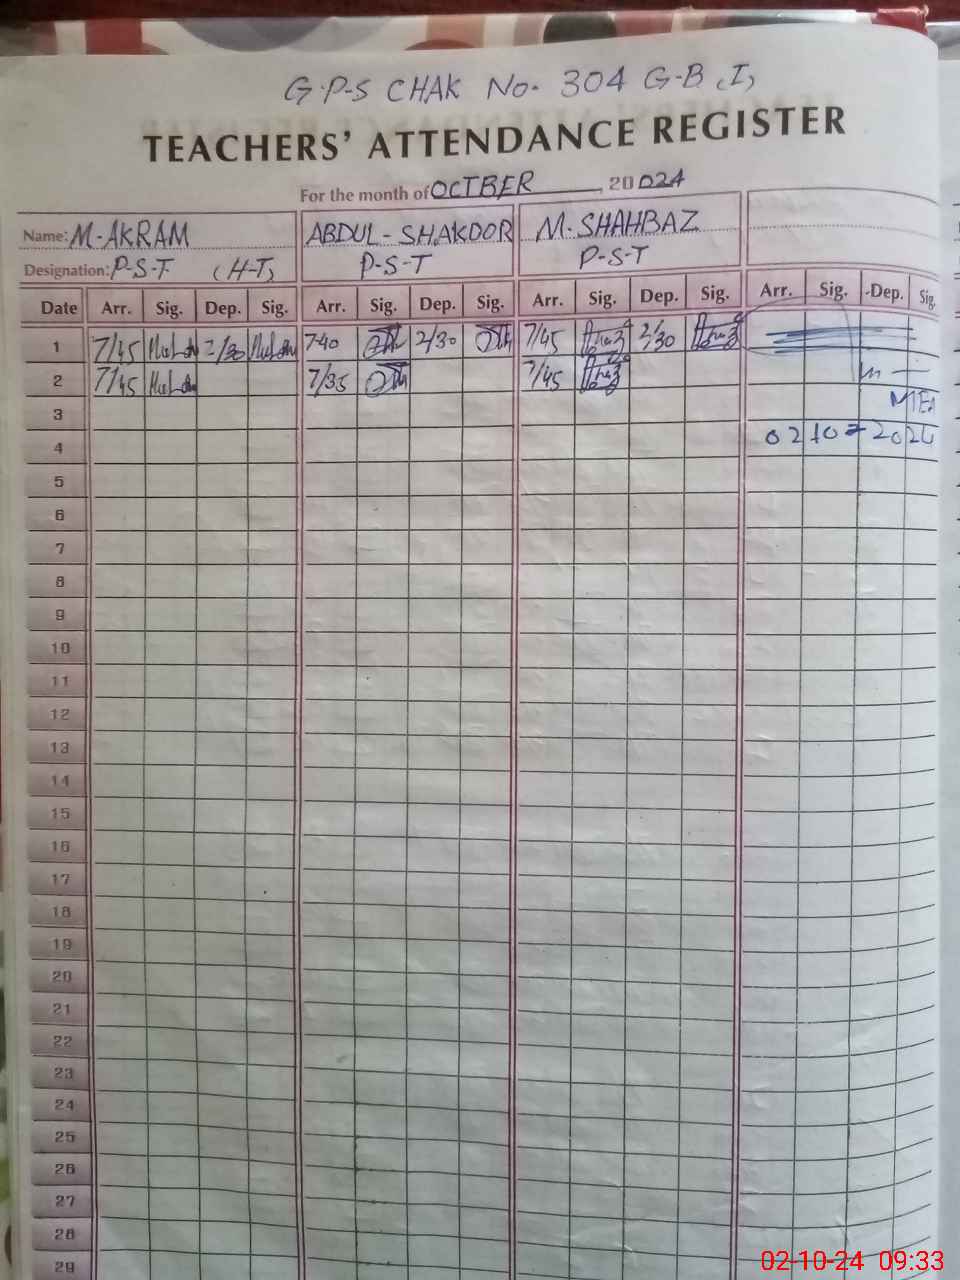 G.P-S CHAK No. 304 G-B (I)
TEACHERS' ATTENDANCE REGISTER
For the month of OCTBER, 20024
Name: M-AKRAM ABDUL-SHAKOOR M-SHAHBAZ
Designation: P-S-T (H-T) P-S-T P-S-T
Date Arr. Sig. Dep. Sig. Arr. Sig. Dep. Sig. Arr. Sig. Dep. Sig. Arr. Sig. Dep. Sig.
1 7/45 2/30 7-40 2/30 7/45 2/30
2 7/45 7/35 7/45
3 MEA
4 02-10-2024
5
6
7
8
9
10
11
12
13
14
15
16
17
18
19
20
21
22
23
24
25
26
27
28
29
02-10-24 09:33